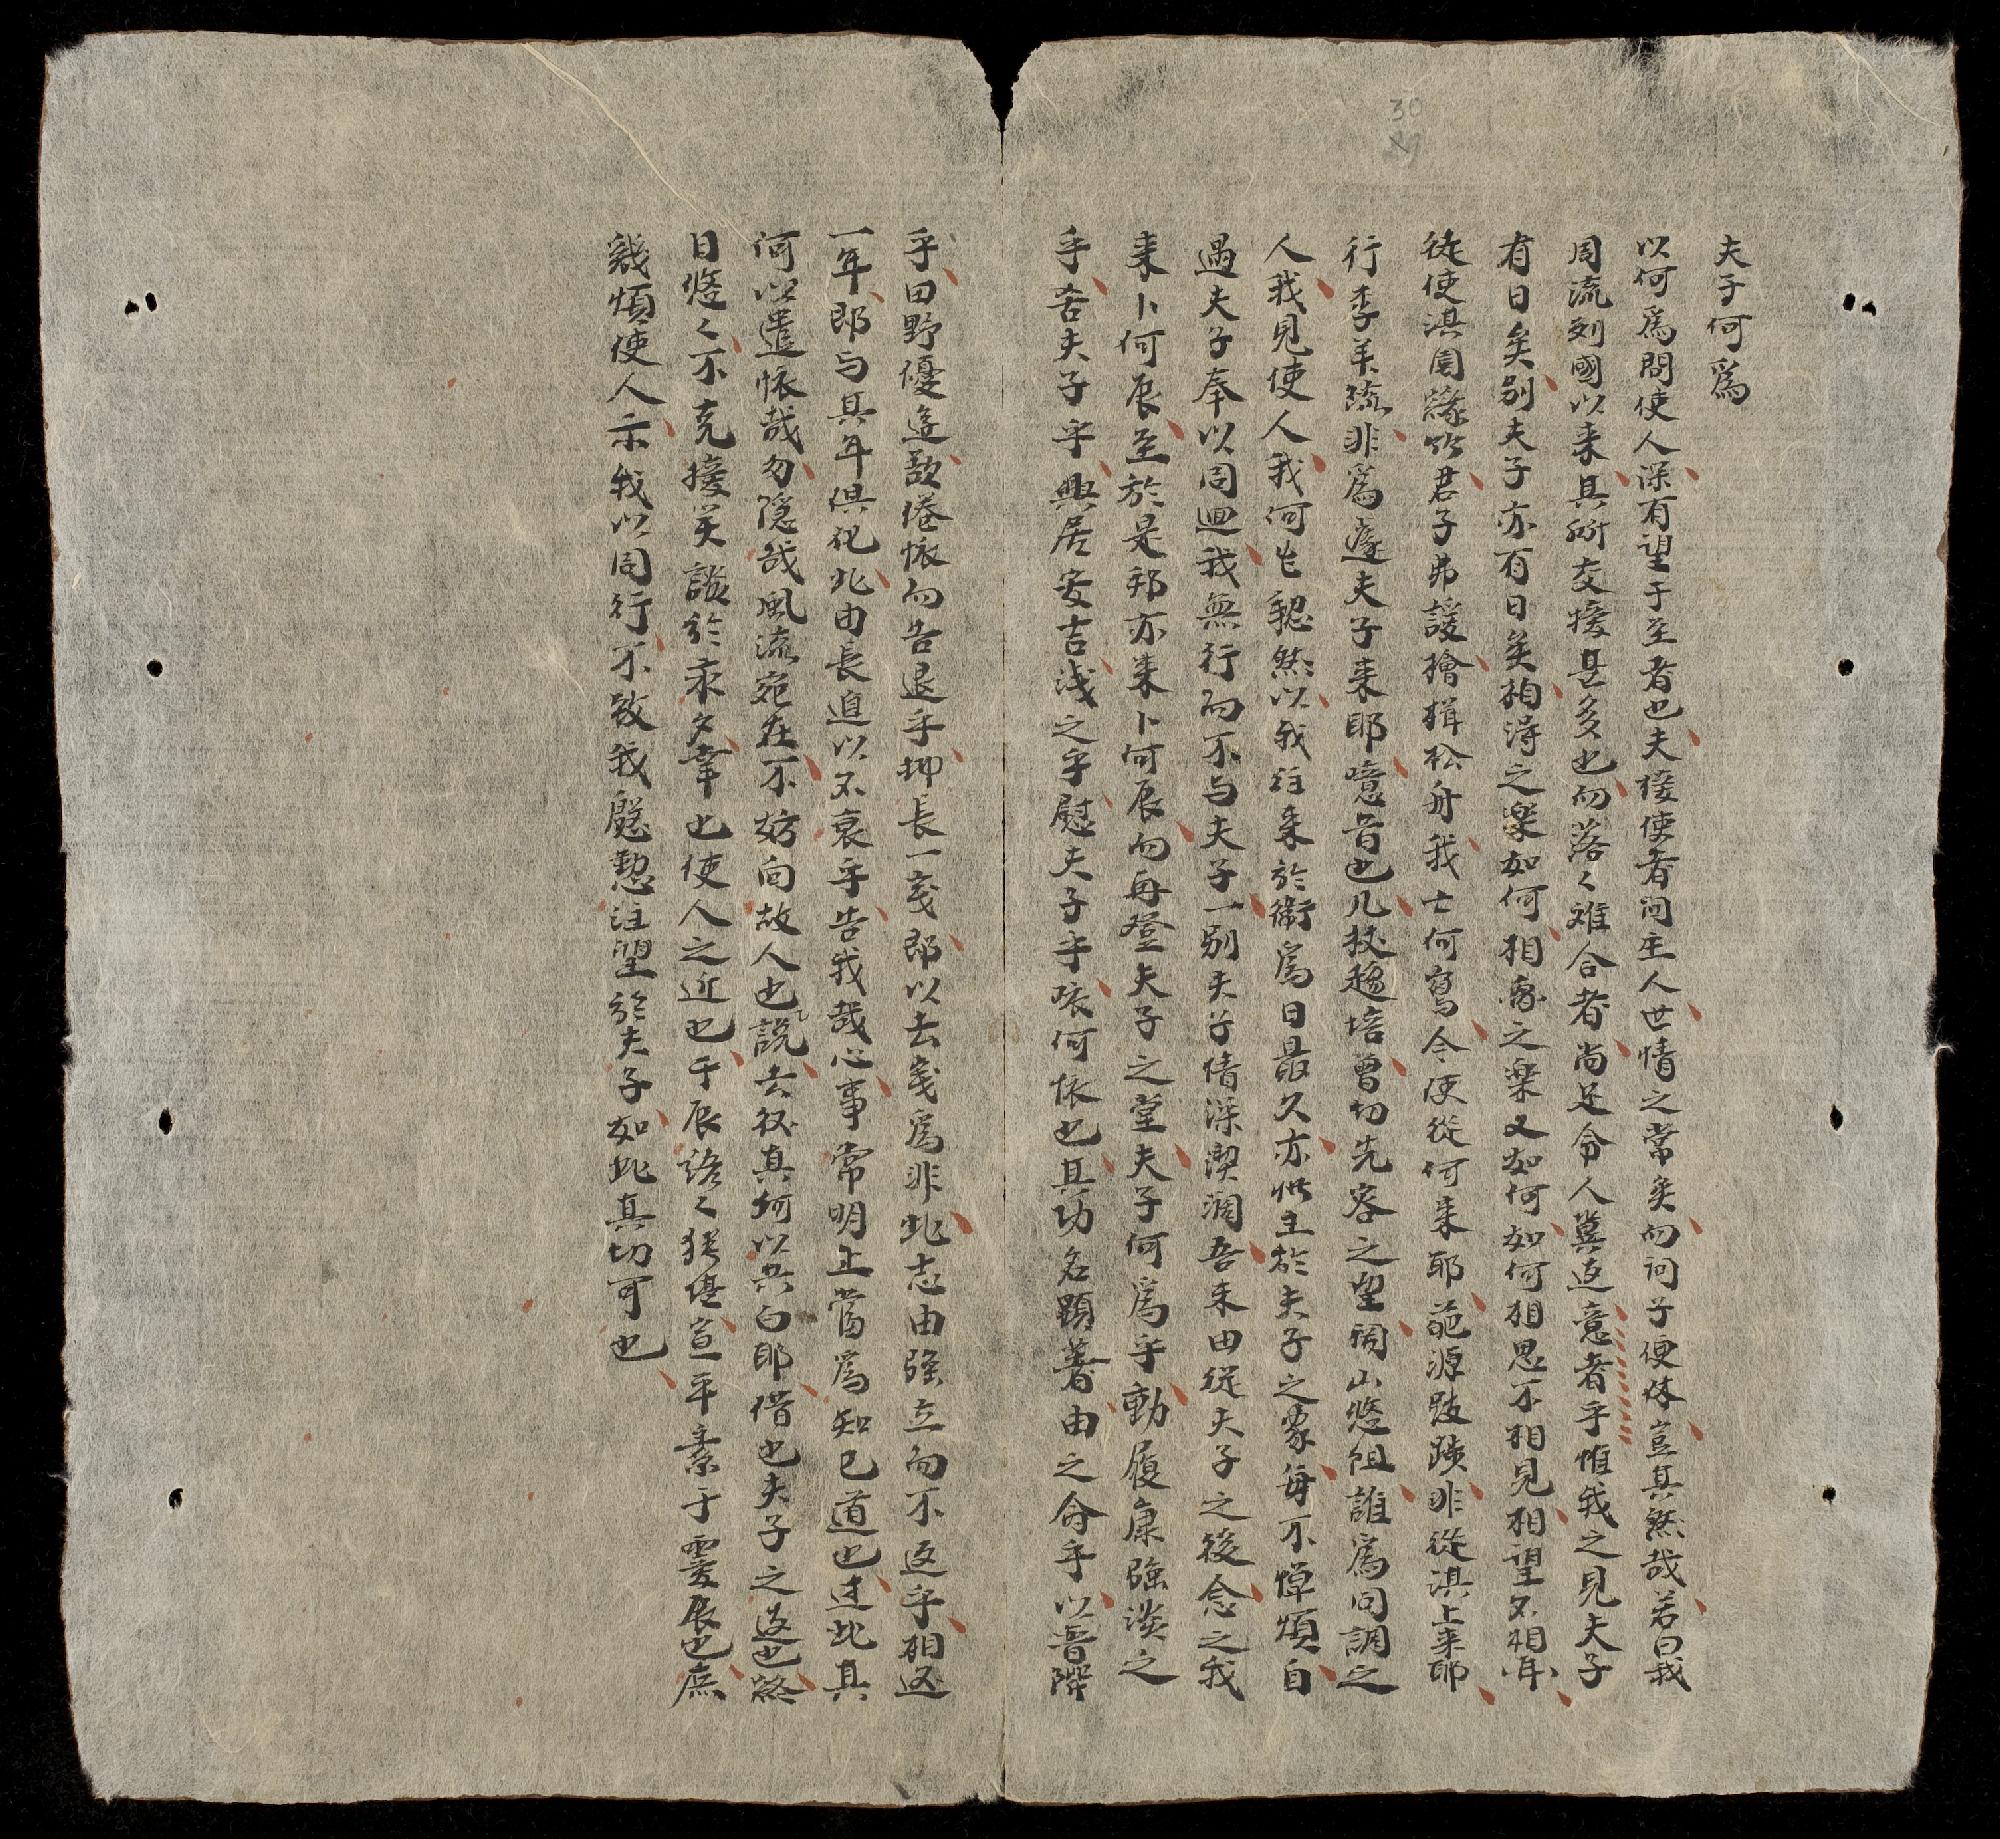 30
夫子何爲
以何爲問使人深有望于至者也夫接使者问主人世情之常矣而问子便休豈其然哉若曰我
周流列國以来具所交接甚多也而落々难合者尚足令人冀返意者乎惟我之見夫子
有日矣别夫子亦有日矣相得之楽如何相惠之楽又如何如何相思不相見相望不相
從使淇園綠竹君子弗諼檜楫松舟我士何寫今使從何来耶範源跋踄非從淇上来耶
行李羊疏非爲蘧夫子来耶噫昔也几杖趨培曽切先容之望關山悠阻誰爲同調之
人我見使人我何乍貌然以我往来於衛爲日最久亦惟主於夫子之家每不憚煩自
遇夫子奉以周迴我無行而不与夫子一别夫子情深濶吾未由從夫子之後念之我
来卜何辰至於是邦亦来卜何辰而再登夫子之堂夫子何爲乎動履康強淡之
乎否夫子乎興居安吉淺之乎慰夫子乎咳何依也且功名顕著由之命乎以晋
乎田野優逰歌倦依而告退乎抑長一歲即以去歲爲非此志由強立而不返乎相逐
一年即与其年俱化此由長進以不衰乎告我哉心事常明正當爲知己道也过此其
何以遣懐哉勿隐哉風流宛在不妨向故人也説去役真何以共白耶借也夫子之返也路
日悠々不克接笑談於永夕幸也使人之近也于辰諮々猶堪宣平素于雯辰也庶
幾煩使人示我以周行不致我慇懃注望於夫子如此真切可也